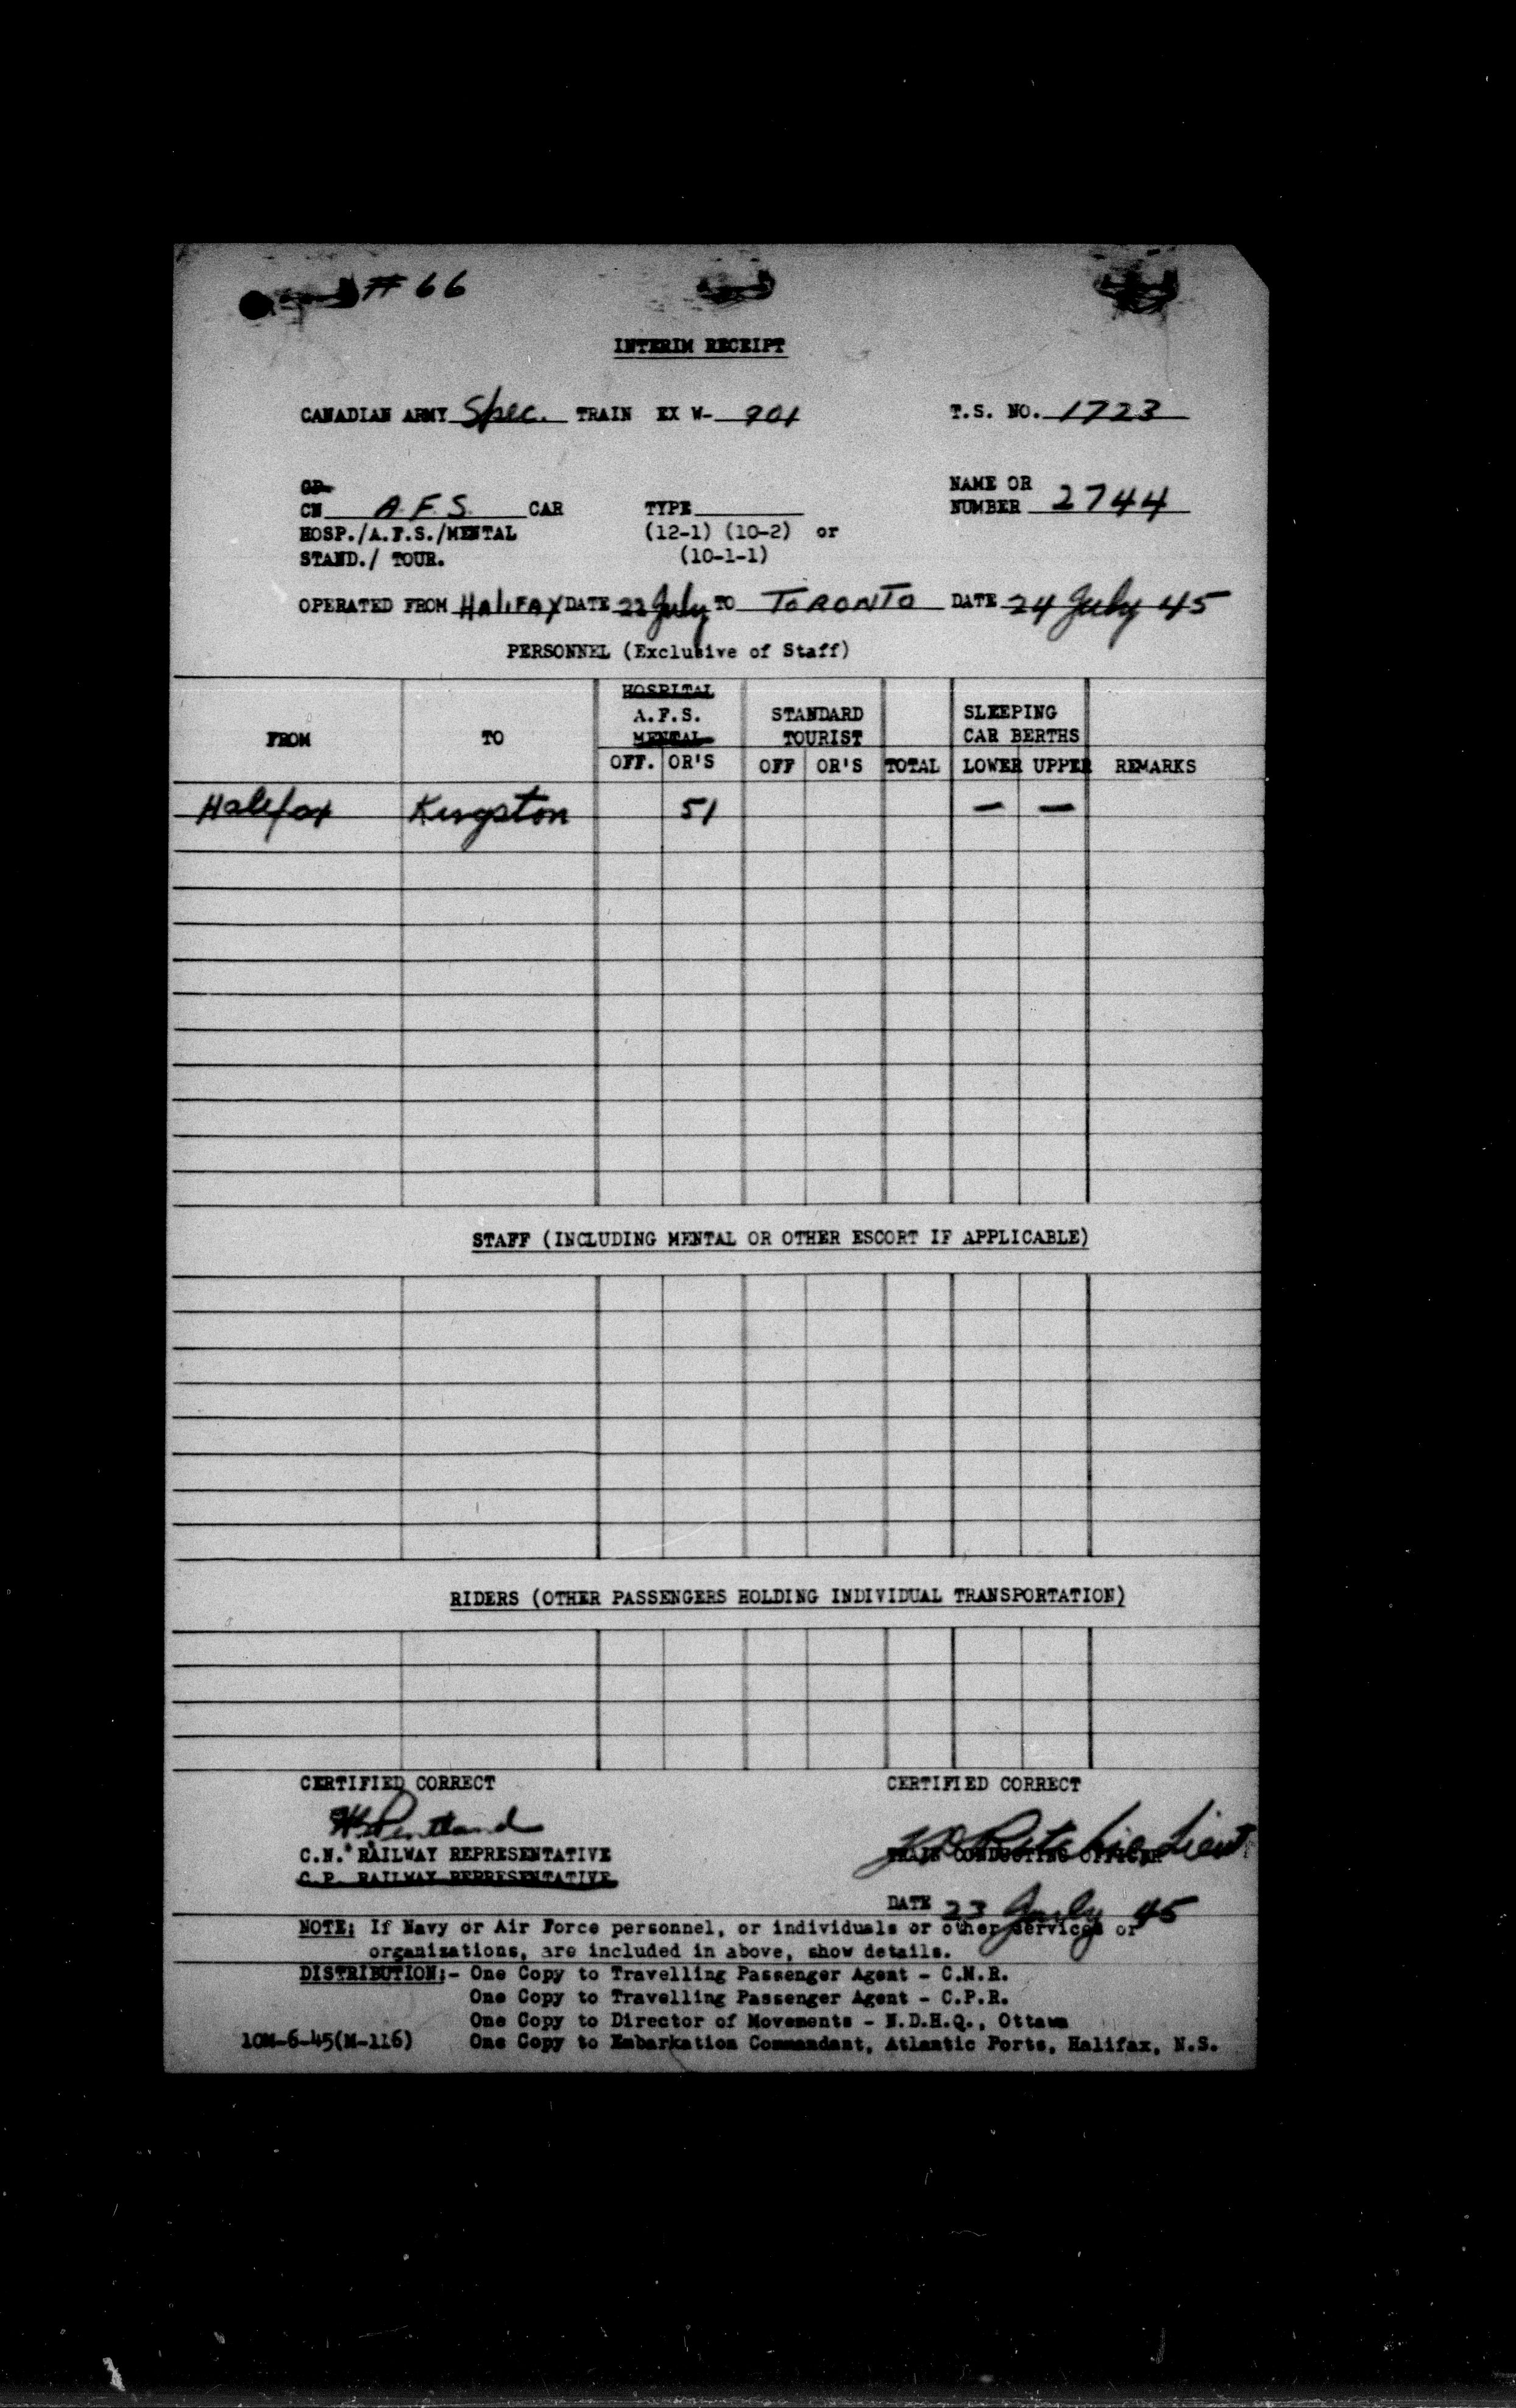 # 66
INTERIM RECEIPT
CANADIAN ARMY Spec. TRAIN EX W- 901 T.S. NO. 1723
CP
CN A.F.S. CAR TYPE NAME OR NUMBER 2744
HOSP./A.F.S./MENTAL (12-1) (10-2) or
STAND./ TOUR. (10-1-1)
OPERATED FROM HALIFAX DATE 22 July TO TORONTO DATE 24 July 45
PERSONNEL (Exclusive of Staff)
FROM TO HOSPITAL A.F.S. MENTAL STANDARD TOURIST SLEEPING CAR BERTHS
OFF. OR'S OFF OR'S TOTAL LOWER UPPER REMARKS
Halifax Kingston 51 — —
STAFF (INCLUDING MENTAL OR OTHER ESCORT IF APPLICABLE)
RIDERS (OTHER PASSENGERS HOLDING INDIVIDUAL TRANSPORTATION)
CERTIFIED CORRECT CERTIFIED CORRECT
Pentland Ritchie Lieut
C.N. RAILWAY REPRESENTATIVE TRAIN CONDUCTING OFFICER
C.P. RAILWAY REPRESENTATIVE
DATE 23 July 45
NOTE: If Navy or Air Force personnel, or individuals or other services or
organizations, are included in above, show details.
DISTRIBUTION:- One Copy to Travelling Passenger Agent - C.N.R.
One Copy to Travelling Passenger Agent - C.P.R.
One Copy to Director of Movements - N.D.H.Q., Ottawa
10M-6-45(M-116) One Copy to Embarkation Commandant, Atlantic Ports, Halifax, N.S.